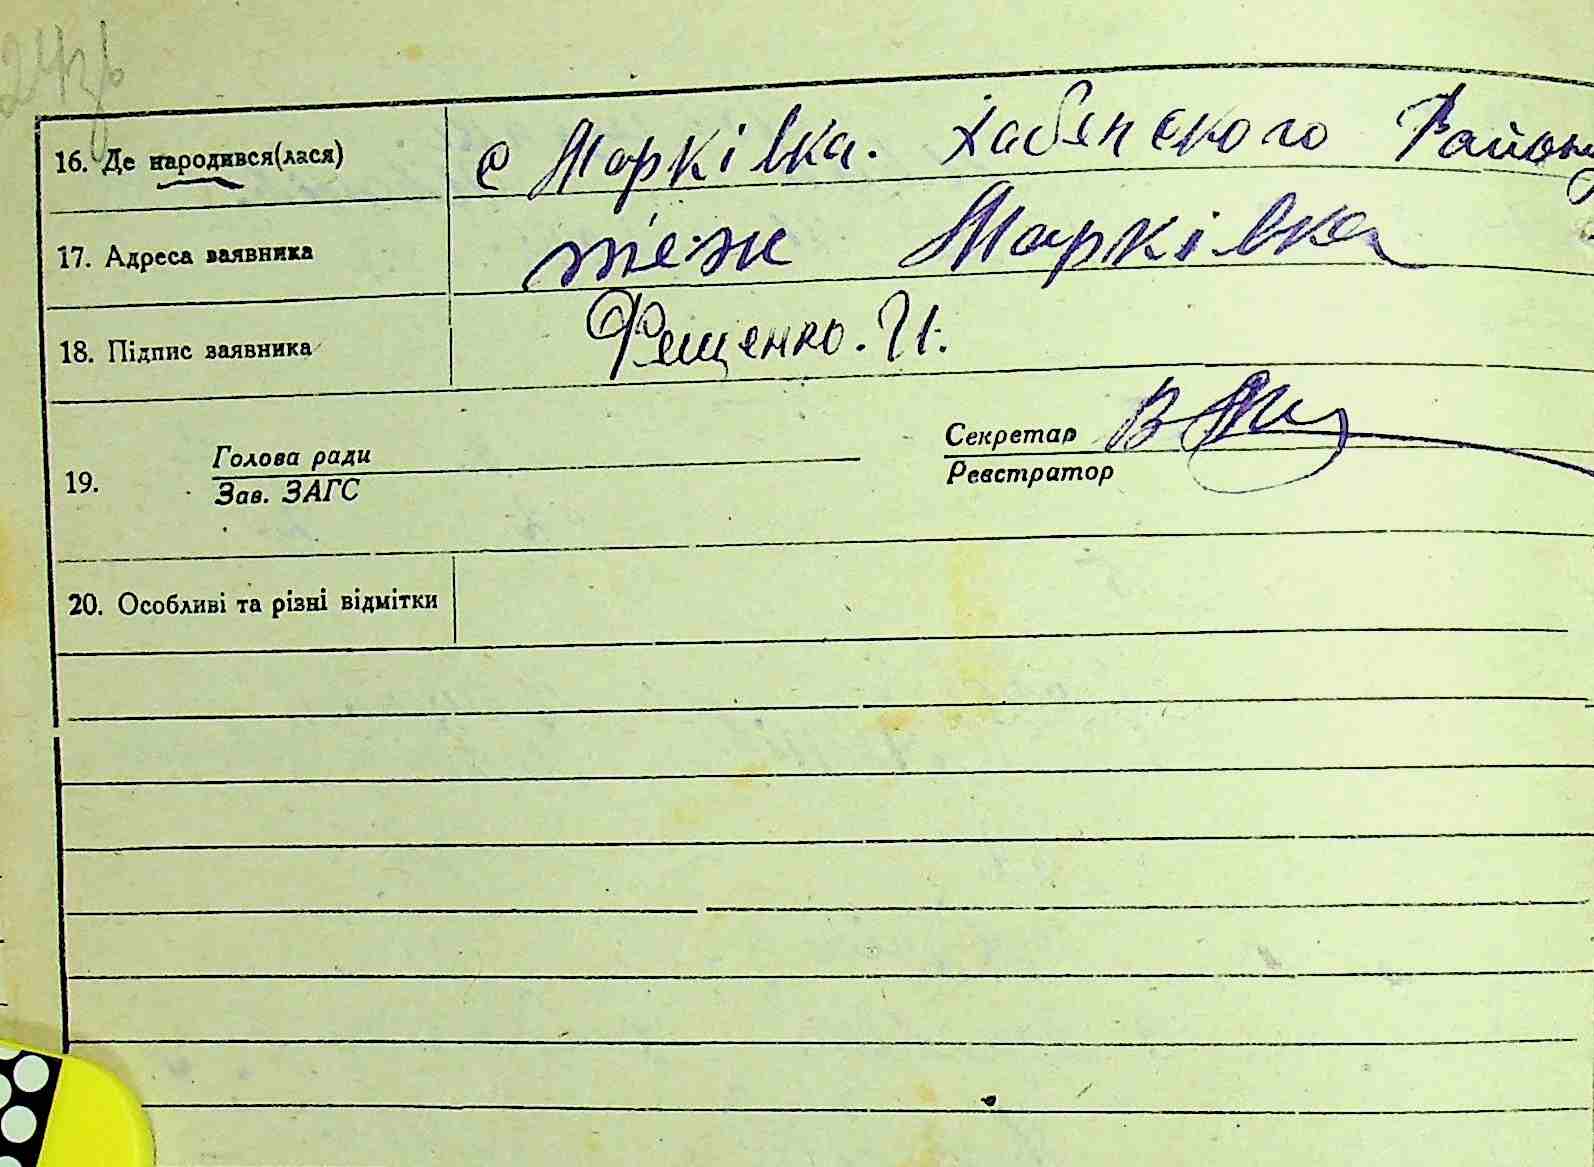 24зв
16. Де народився(лася) с Марківка. Хабєнського Району
17. Адреса заявника теж Марківка
18. Підпис заявника Фещенко. И.
19. Голова ради Секретар
Зав. ЗАГС Реєстратор
20. Особливі та різні відмітки